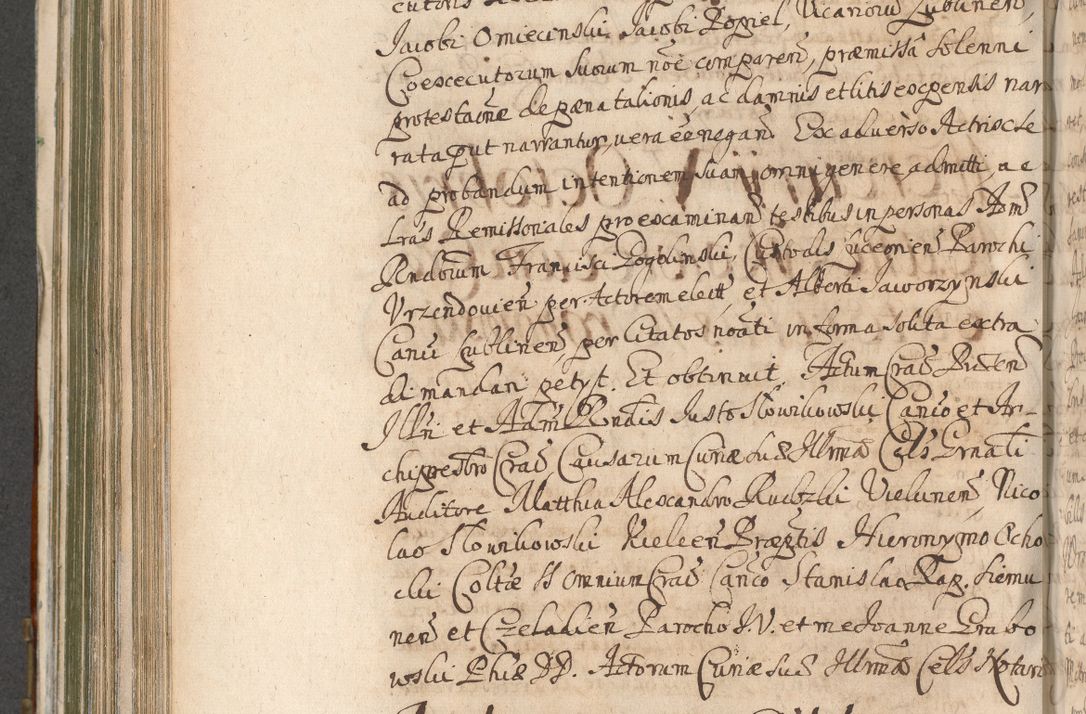 Jacobi Omiecinski, Jacobi Zogiel, Vicarioru Lublinen,
Coexecutorum suorum nõe comparen, præmissâ solenni
protestaõne de pæna talionis, ac damnis et litis expensis nar
rata put narrantur, vera eē negan̄. Ex adverso Actrix se
ad probandum intentionem suam omni genere admitti ac
Lrãs Remissoriales pro examinan testibus in personas Adm
Rndorum Francisci Pogolinski, Custodis Parochi
Urzendovien per Actorem elect, et Alberti Jaworzynski
Canci Lublinen per Citatos noãti in forma solita extra
di mandari petyt. Et obtinuit. Actum Crac Pñten
Illri et Adm Rndis Justo Slowikowski Canco et Ar-
chipresbro Crac Causarum Curiæ suæ Illrmæ Cels Gnali
Auditore Matthia Alexandro Rudzki Vielunen, Nico
lao Slowikowski Kielcen Præptis Hieronymo Ocho
cki Coltæ SS Omnium Crac Canco Stanislao Pap. Siemu
nen et Czeladien Parocho J.V. et me Joanne Grabo
wski Phiæ DD. Actorum Curiæ suæ Illrmæ Cels Notari